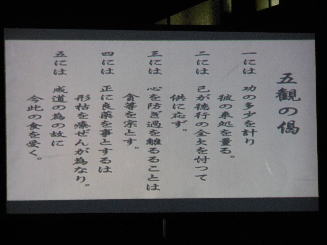 五観の偈
一には 功の多少を計り
彼の来処を量る。
二には 己が徳行の全欠を忖って
供に応ず。
三には 心を防ぎ過を離るることは
貪等を宗とす。
四には 正に良薬を事とするは
形枯を療ぜんが為なり。
五には 成道の為の故に
今此の食を受く。